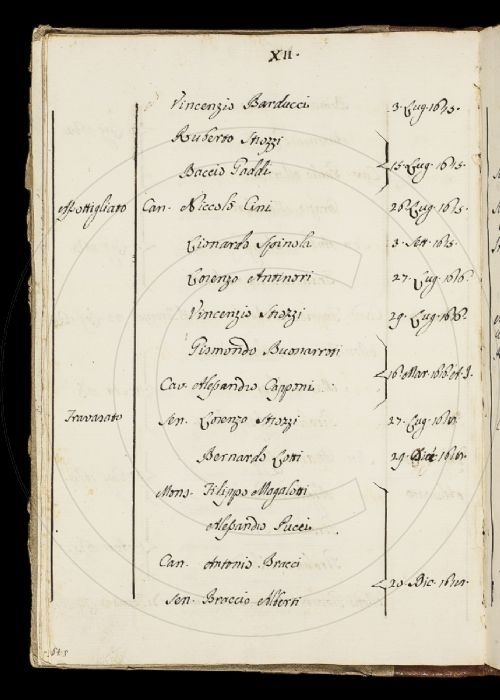 XII.
Vincenzio Barducci 3. Lug. 1615.
Ruberto Strozzi
Baccio Gaddi 15. Lug. 1615.
Can. Niccolò Cini 26. Lug. 1615.
Lionardo Spinola 3. Sett. 1615.
Lorenzo Antinori 27. Lug. 1616.
Vincenzio Strozzi 29. Lug. 1616.
Gismondo Buonarroti
Cav. Alessandro Capponi
Travasato Sen. Lorenzo Strozzi 27. Lug.
Bernardo Lotti 29.
Mons. Filippo Magalotti
Alessandro Pucci
Can. Antonio Bracci
Sen. Braccio Alberti 20. Dic.